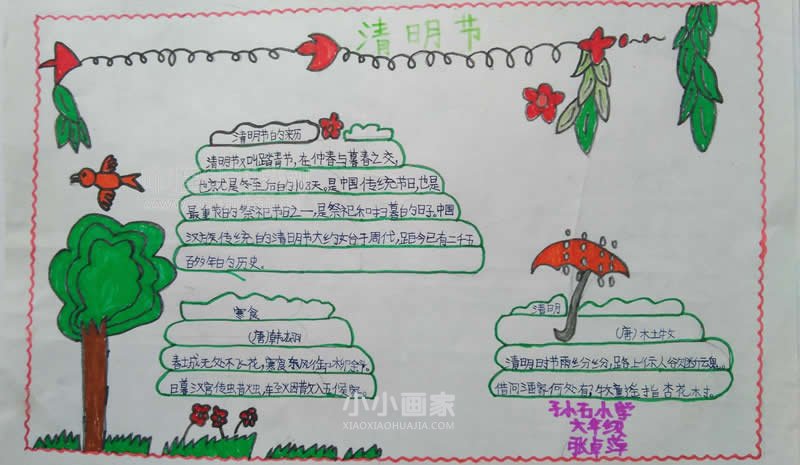 清明节
清明节的来历
清明节又叫踏青节,在仲春与暮春之交,
也就是冬至后的108天。是中国传统节日,也是
最重要的祭祀节日之一,是祭祀和扫墓的日子。中国
汉族传统的清明节大约始于周代,距今已有二千五
百多年的历史。
寒食
(唐)韩翃
春城无处不飞花,寒食东风御柳斜。
日暮汉宫传蜡烛,轻烟散入五侯家。
清明
(唐)杜牧
清明时节雨纷纷,路上行人欲断魂。
借问酒家何处有?牧童遥指杏花村。
石小学
六年级
张卓
小小画家
XIAOXIAOHUAJIA.COM